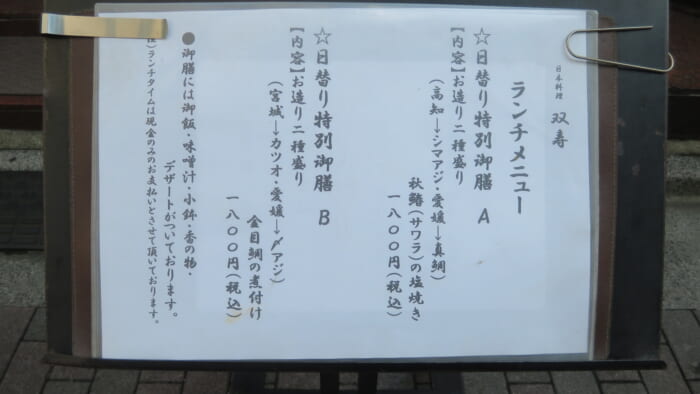 日本料理 双寿
ランチメニュー
☆日替り特別御膳 A
【内容】お造り二種盛り
(高知→シマアジ・愛媛→真鯛)
秋鰆(サワラ)の塩焼き
一八〇〇円(税込)
☆日替り特別御膳 B
【内容】お造り二種盛り
(宮城→カツオ・愛媛→〆アジ)
金目鯛の煮付け
一八〇〇円(税込)
●御膳には御飯・味噌汁・小鉢・香の物・
デザートがついております。
)ランチタイムは現金のみのお支払いとさせて頂いております。